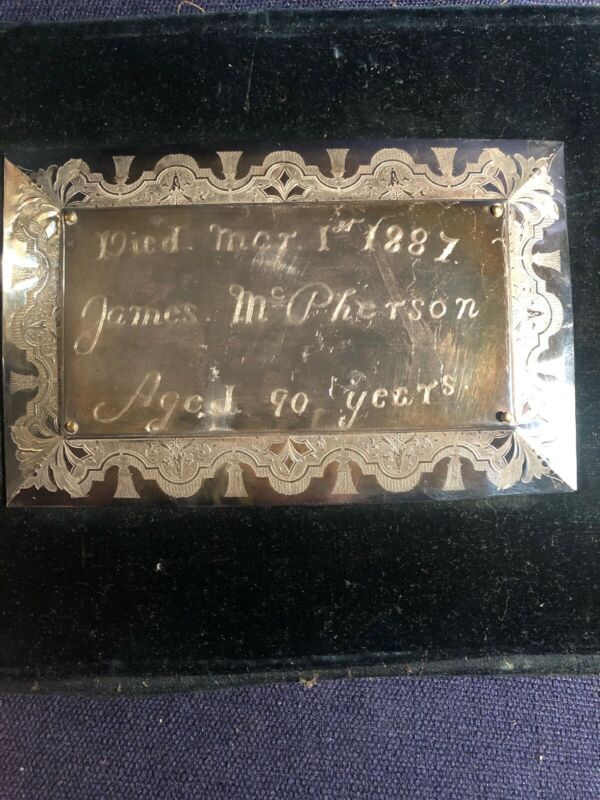 Died. Mar. 1st 1887.
James. McPherson
Aged 90, years.